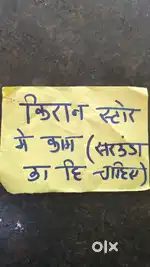 किरान स्टोर
मे काम (सरऊडा
का हि चाहिए)
olx